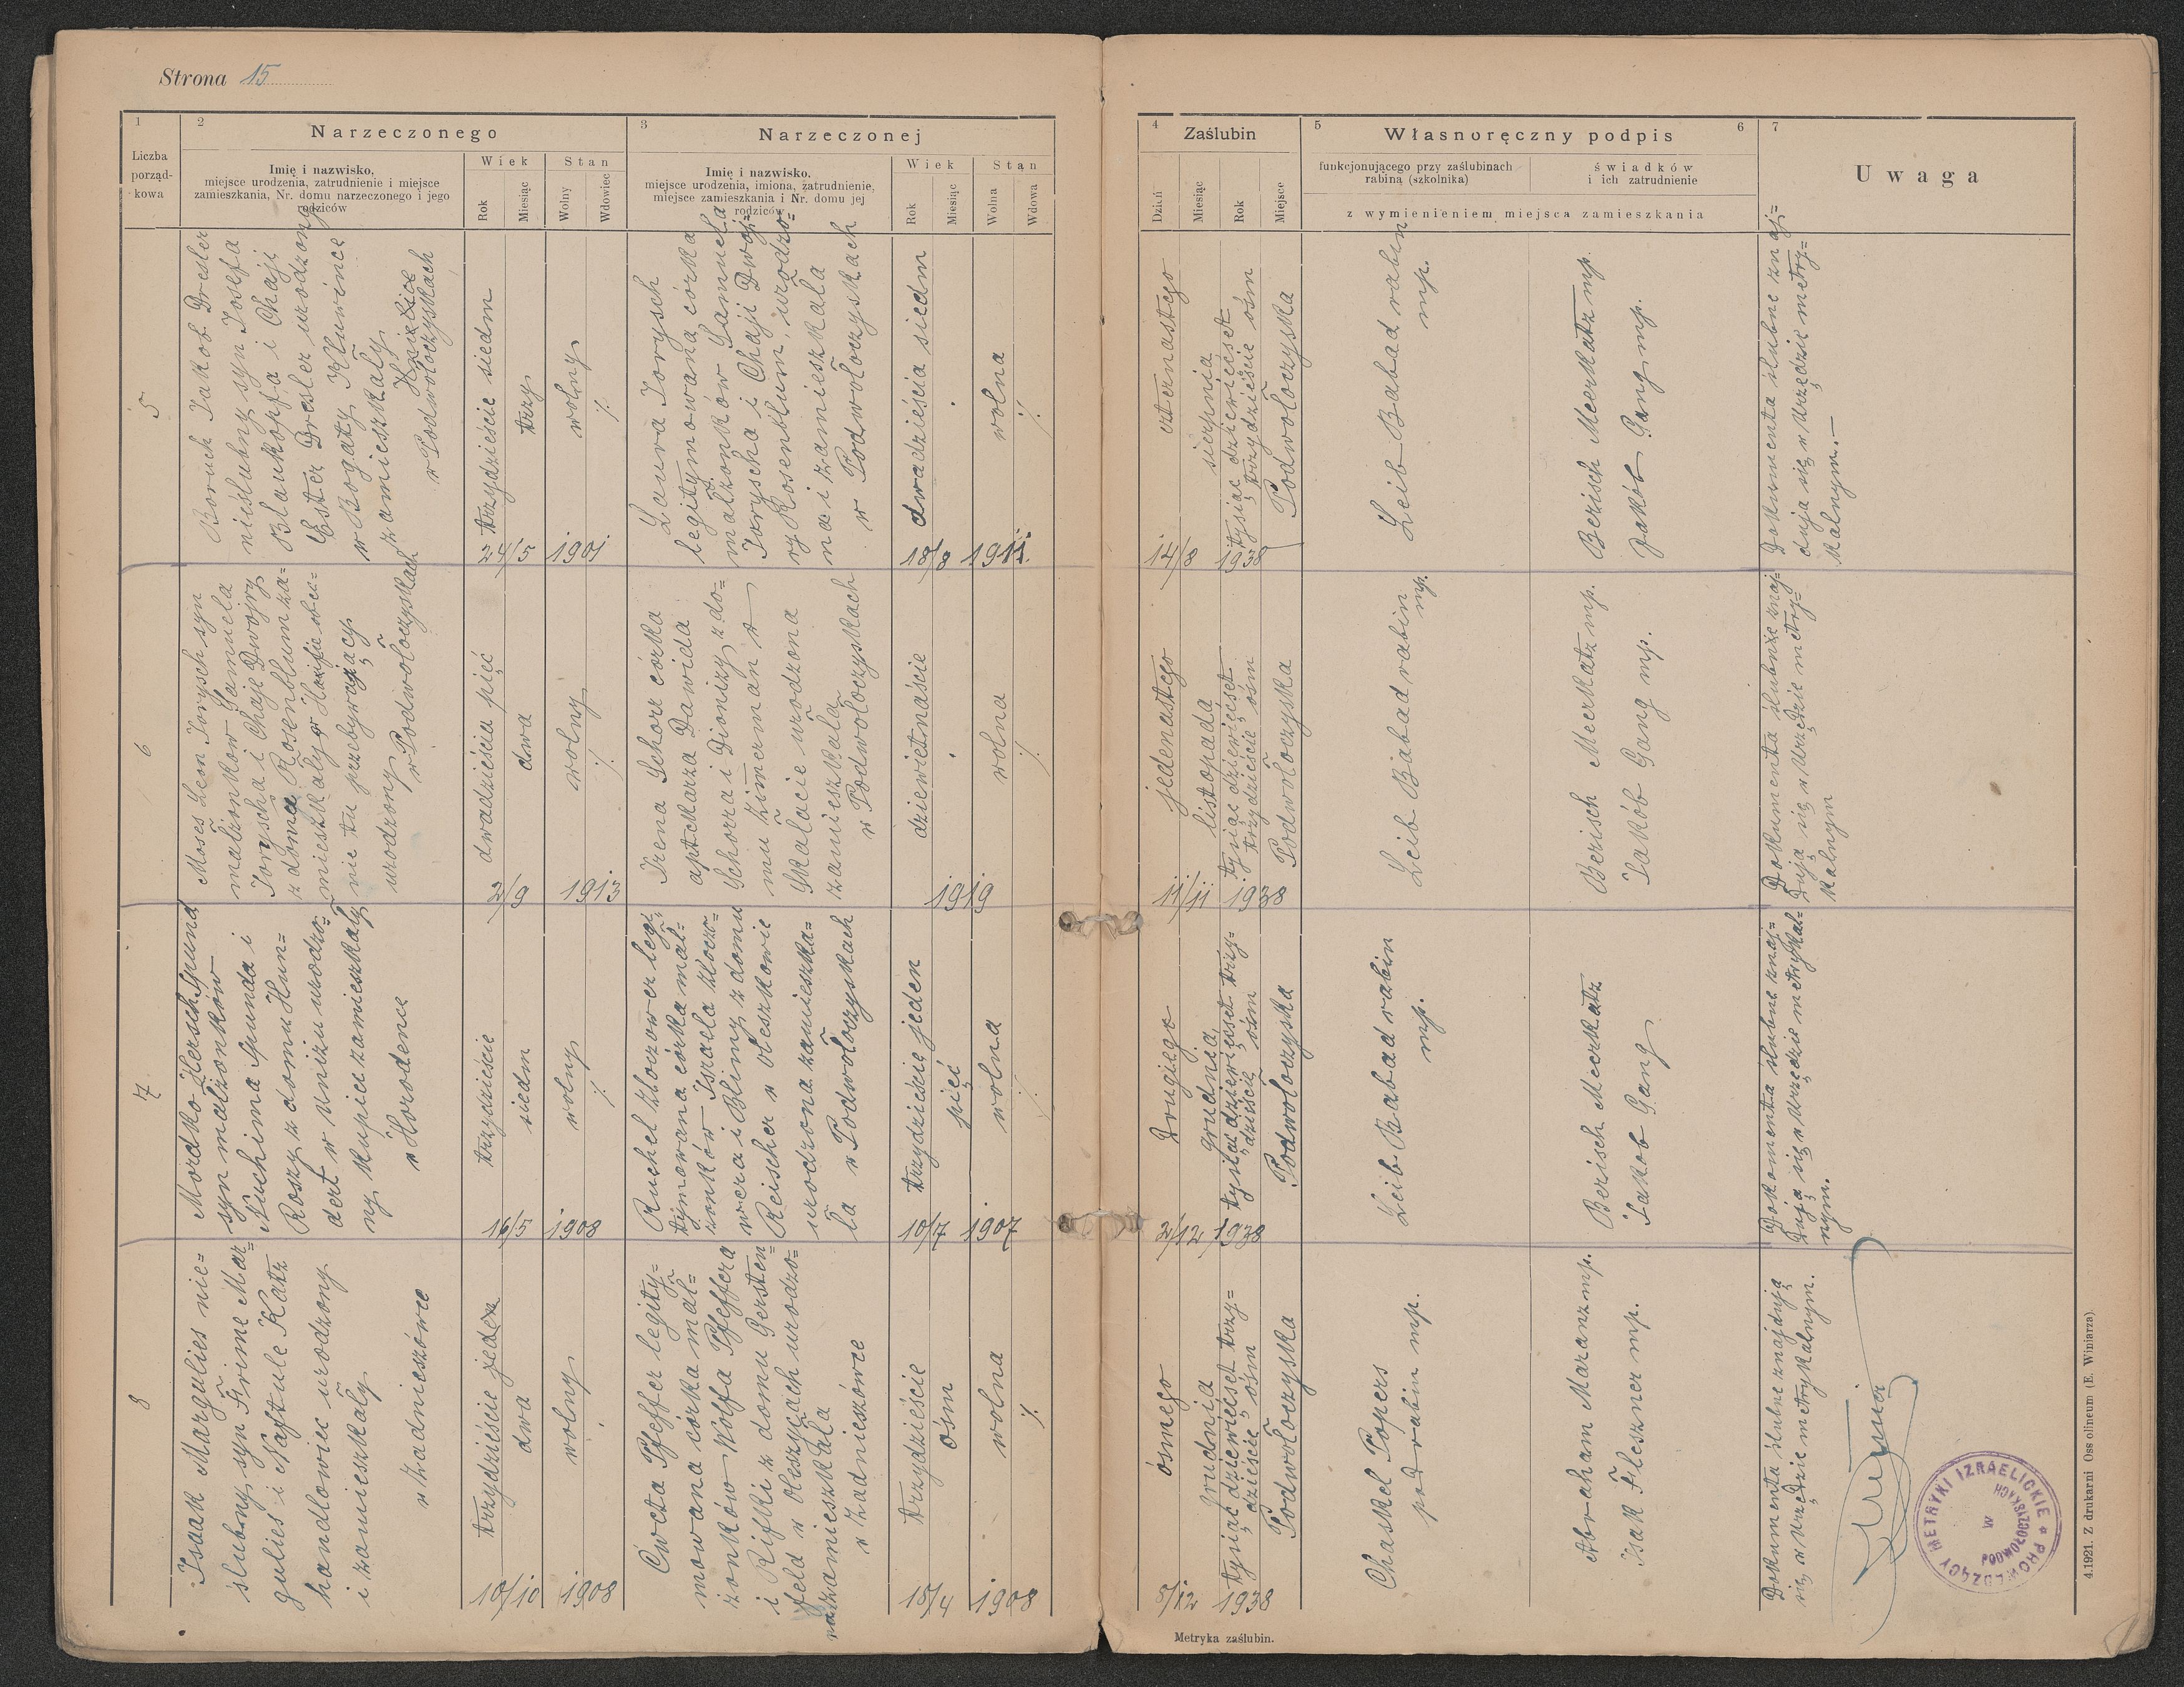 Strona 15
1
Liczba
porząd-
kowa
2
Narzeczonego
Imię i nazwisko,
miejsce urodzenia, zatrudnienie i miejsce
zamieszkania, Nr. domu narzeczonego i jego
rodziców
Wiek
Rok
Miesiąc
Stan
Wolny
Wdowiec
3
Narzeczonej
Imię i nazwisko.
miejsce urodzenia, imiona, zatrudnienie,
miejsce zamieszkania i Nr. domu jej
rodziców
Wiek
Rok
Miesiąc
Stan
Wolna
Wdowa
4
Zaślubin
Dzień
Miesiąc
Rok
Miejsce
5
Własnoręczny podpis
6
funkcjonującego przy zaślubinach
rabina (szkolnika)
świadków
i ich zatrudnienie
z wymienieniem miejsca zamieszkania
7
Uwaga
5
Boruch Jakob Dresler
nieślubny syn Josefa
Blaukopfa i Chaji
Ester Dresler urodzony
w Bogaty Kluwince
zamieszkały
w Podwołoczyskach
trzydzieście siedm
trzy
wolny
%
24/5 1901
Laura Jorysch
legitymowana córka
małżonków Samuela
Joryscha i Chaji Dwoj=
ry Rosenblum, urodzo=
na i zamieszkała
w Podwołoczyskach
dwadzieścia siedm
wolna
%
18/8 1911.
czternastego
sierpnia
tysiąc dziewięćset
trzydzieście ośm
Podwołoczyska
14/8 1938
Leib Babad rabin
mp.
Berisch Meerkatz mp.
Jakób Gang mp.
Dokumenta ślubne znaj=
dują się w Urzędzie metry=
kalnym.—
6
Moses Leon Jorysch syn
małżonków Samuela
Joryscha i Chaje Dwojry
z doma Rosenblum za=
mieszkały w Haifie obec=
nie tu przebywający
urodzony
w Podwołoczyskach
dwadzieścia pięć
dwa
wolny
%
2/9 1913
Irena Schorr córka
aptekarza Dawida
Schorra i Dionizy z do=
mu Zimerman w
Skalacie urodzona
zamieszkała
w Podwołoczyskach
dziewietnaście
wolna
%
1919
jedenastego
listopada
tysiąc dziewięćset
trzydzieście ośm
Podwołoczyska
11/11 1938
Leib Babad rabin
mp.
Berisch Meerkatz mp.
Jakób Gang mp.
Dokumenta ślubnie znaj=
dują się w Urzędzie metry=
kalnym
7
Mordko Hersch Spund
syn małżonków
Nuchima Spunda i
Roszy z domu Hun=
dert w Uniżu urodzo=
ny kupiec zamieszkały
w Horodence
trzydzieście
siedm
wolny
%
16/5 1908
Ruchel Złoczower legi
tymowana córka mał=
żonków Israela Złoczo=
wera i Blimy z domu
Reischer w Oleszkowie
urodzona zamieszka=
ła w Podwołoczyskach
trzydzieście jeden
pięć
wolna
%
10/7 1907
drugiego
grudnia
tysiąc dziewięćset trzy=
dzieście ośm
Podwołoczyska
2/12 1938
Leib Babad rabin
mp.
Berisch Meerkatz
Jakob Gang
Dokomenta ślubne znaj=
dują się w Urzędzie metrykal=
nym.
8
Isaak Margulies nie=
ślubny syn Frime Mar=
gulies i Naftule Katz
handlowiec urodzony
i zamieszkały
w Zadnieszówce
trzydzieście jeden
dwa
wolny
10/10 1908
Cweta Pfeffer legity=
mowana córka mał=
żonków Wolfa Pfeffera
i Rifki z domu Gersten=
feld w Oleszycach urodzo=
na zamieszkała
w Zadnieszówce
trzydzieście
ośm
wolna
%
15/4 1908
ósmego
grudnia
tysiąc dziewięćset trzy=
dzieście ośm
Podwołoczyska
8/12 1938
Chaskel Popers
podrabin mp.
Abraham Maranz mp.
Isak Fleszner mp.
Dokumenta ślubne znajdują
się w Urzędzie metrykalnym.
PROWADZĄCY METRYKI IZRAELICKIE
W
PODWOŁOCZYSKACH
Metryka zaślubin.
4.1921. Z drukarni Ossolineum (E. Winiarza).